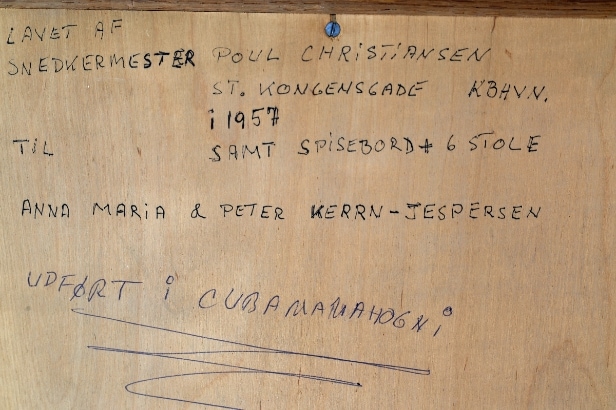 LAVET AF
SNEDKERMESTER POUL CHRISTIANSEN
ST. KONGENSGADE KBHVN.
i 1957
TIL SAMT SPISEBORD + 6 STOLE
ANNA MARIA & PETER KERRN-JESPERSEN
UDFØRT i CUBAMAMAHOGNi